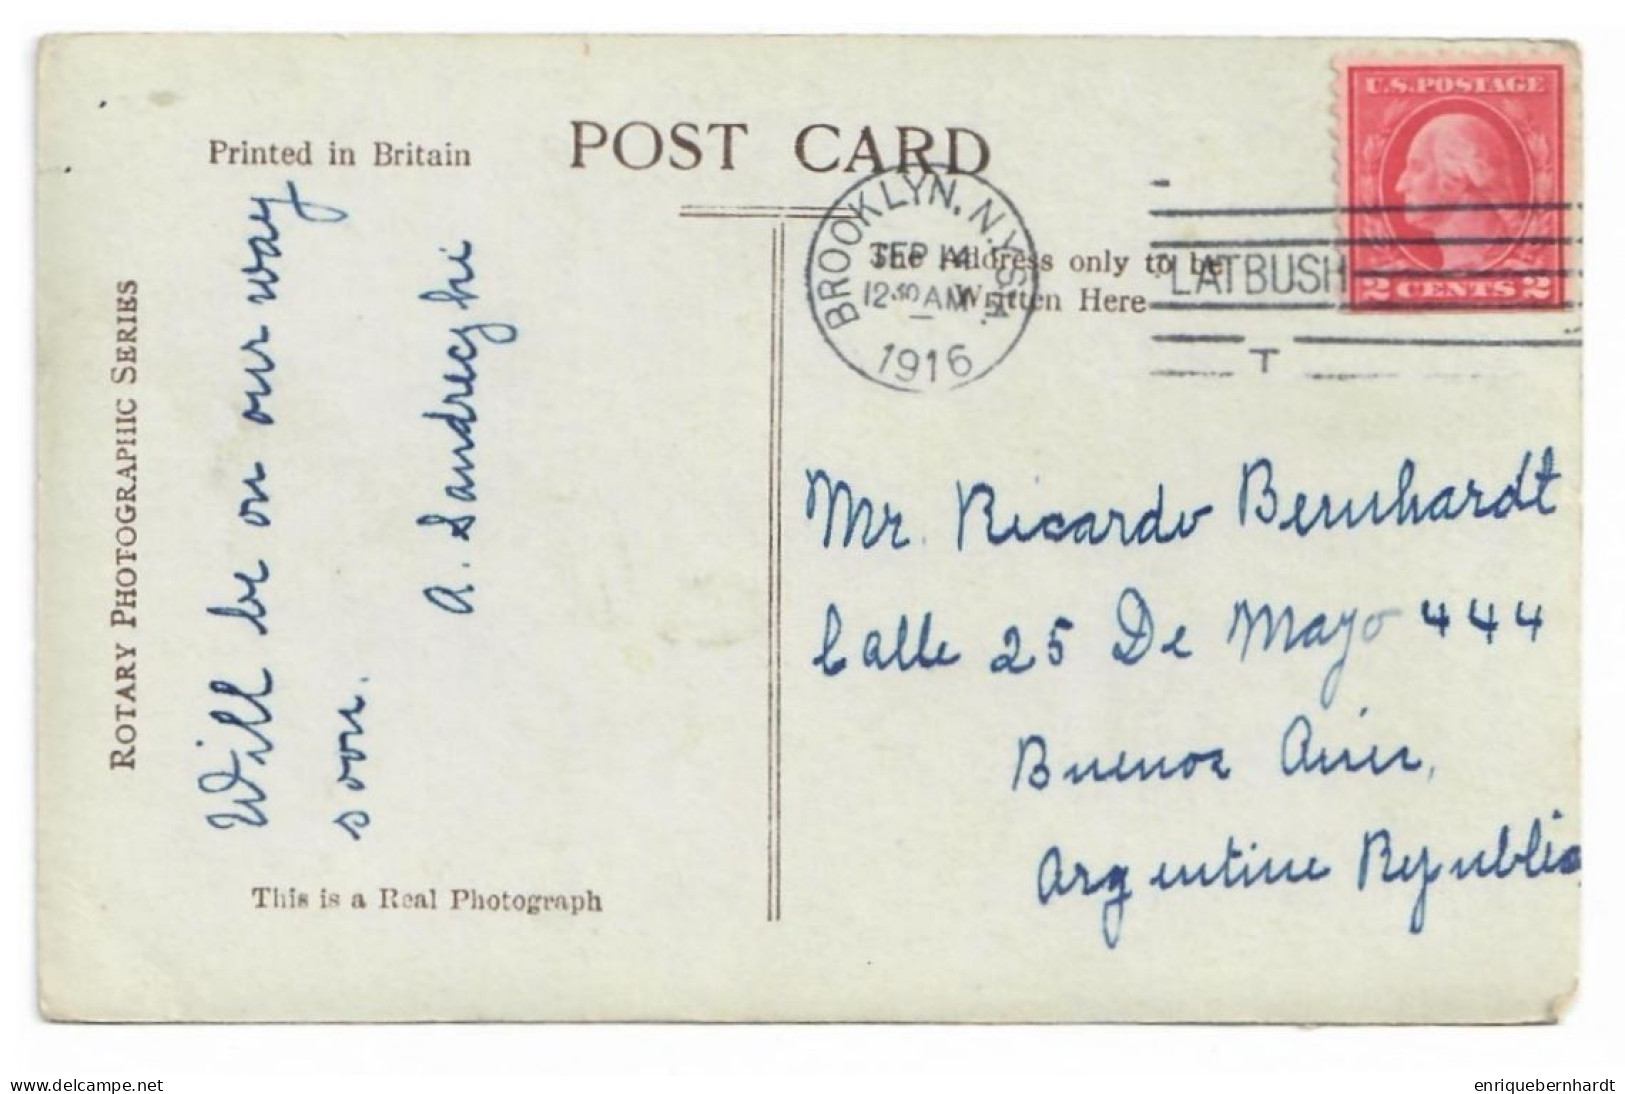 Printed in Britain
POST CARD
ROTARY PHOTOGRAPHIC SERIES
Will be on our way
soon.
This is a Real Photograph
BROOKLYN, N.Y.
SEP 14
12 30 AM
1916
LATBUSH
T
U.S. POSTAGE
2 CENTS 2
The Address only to be
Written Here
Mr. Ricardo Bernhardt
Calle 25 De Mayo 444
Buenos Aires,
Argentine Republic
www.delcampe.net
enriquebernhardt